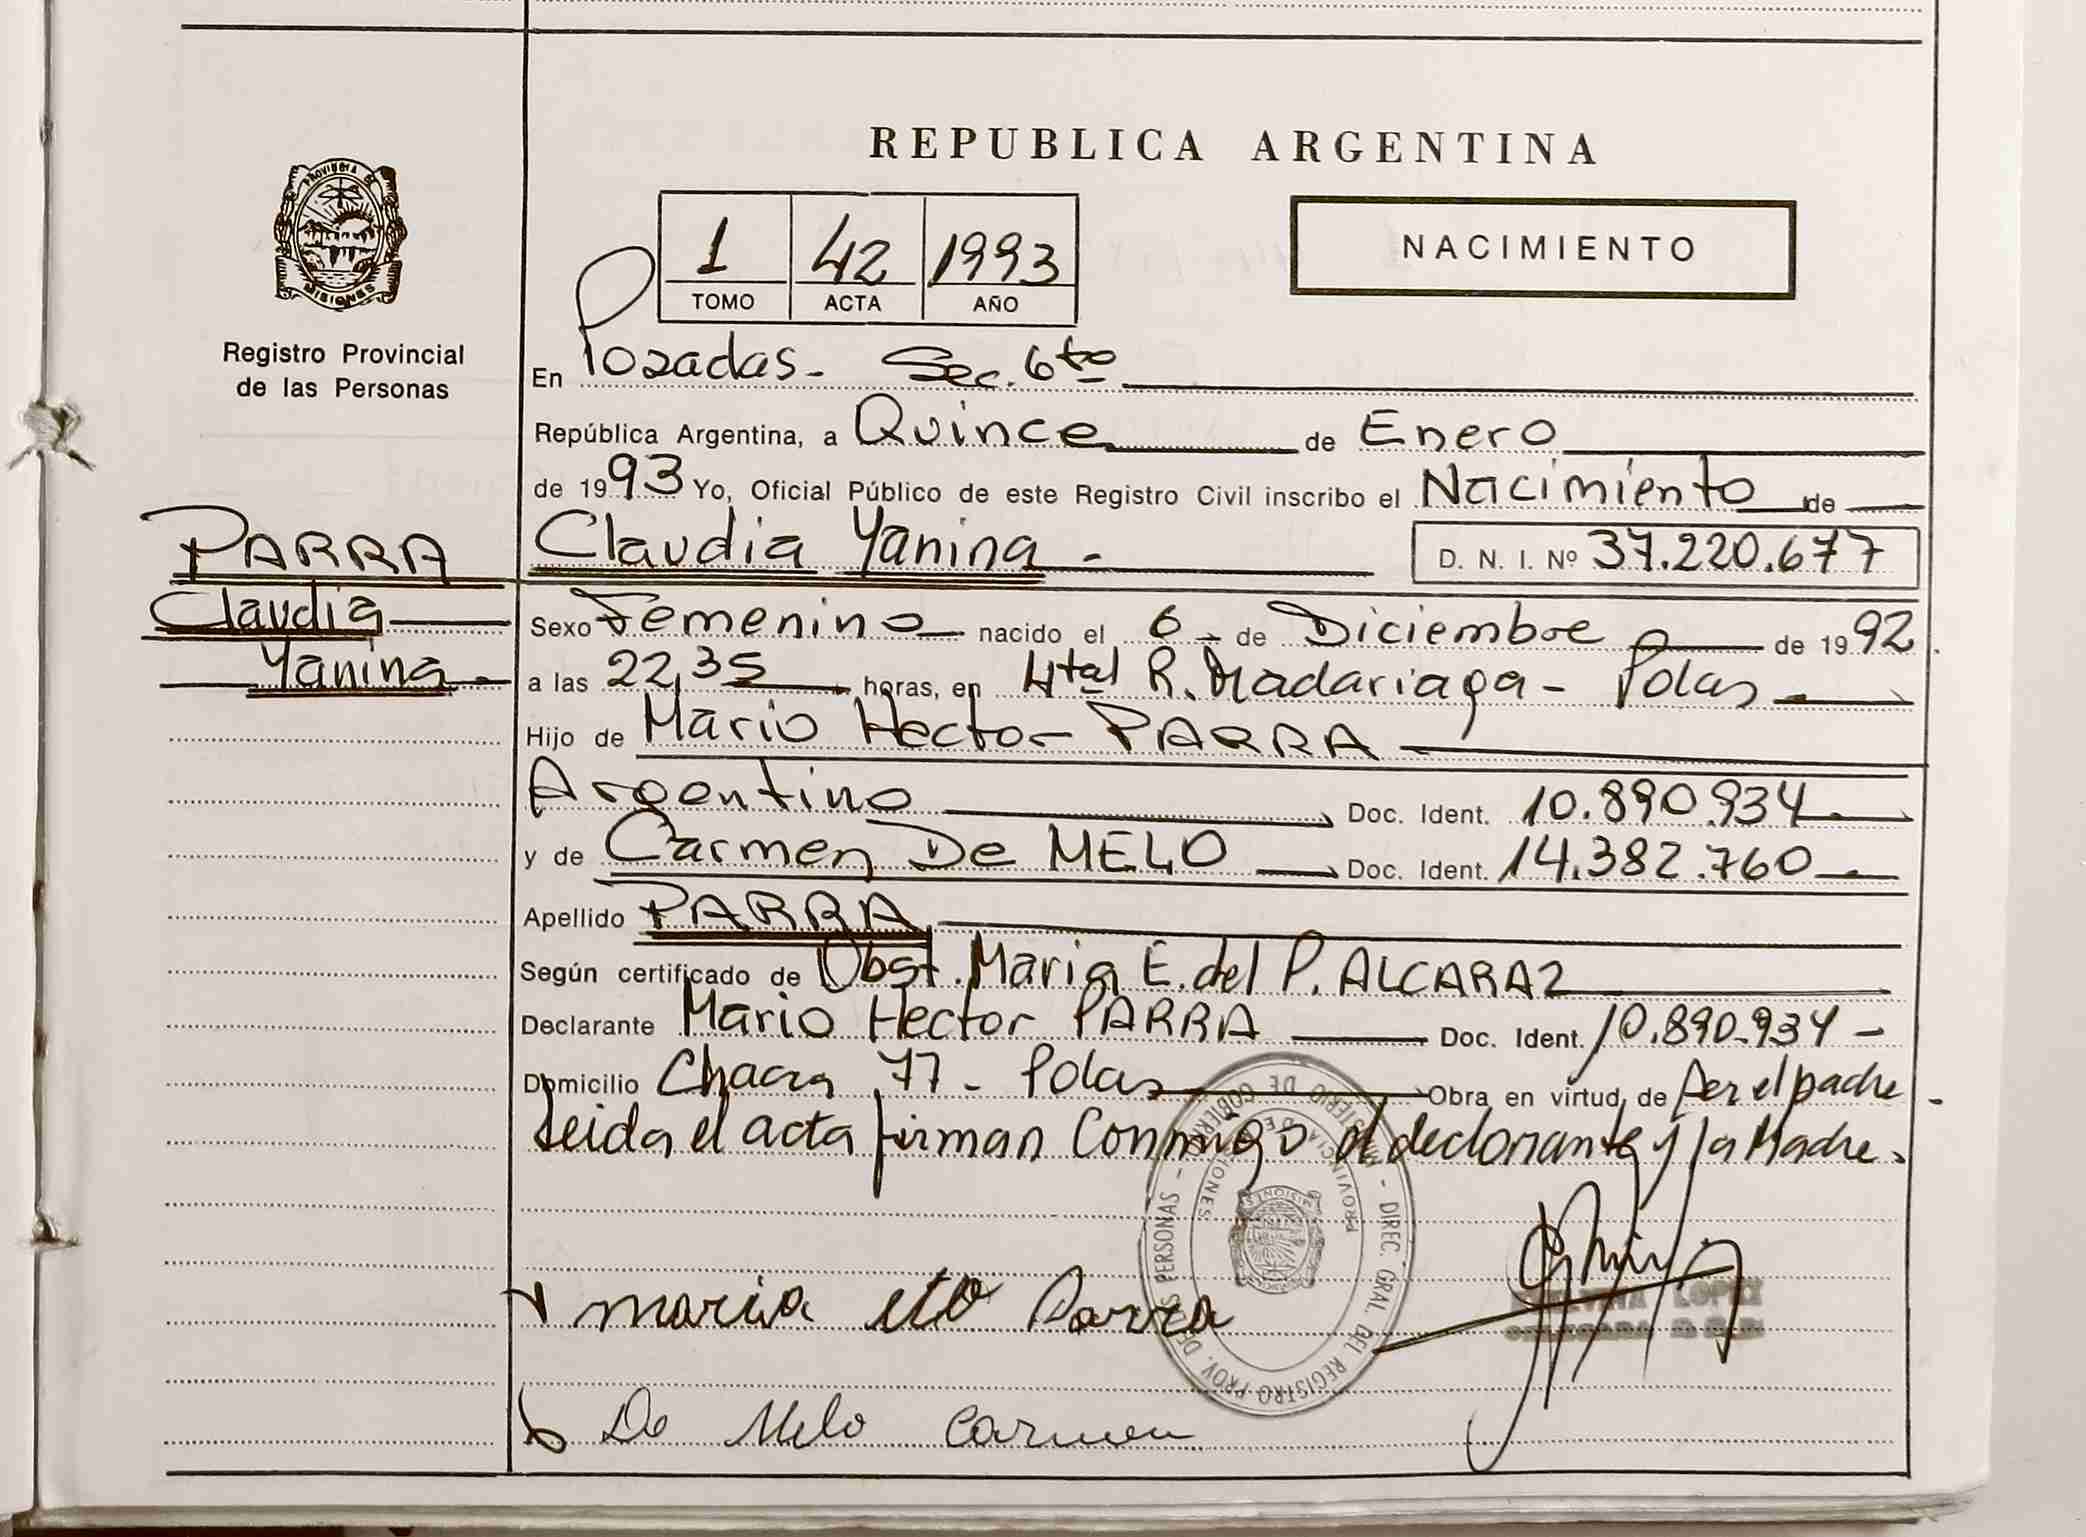 REPUBLICA ARGENTINA
PROVINCIA DE
MISIONES
Registro Provincial
de las Personas
1 42 1993
TOMO ACTA AÑO
NACIMIENTO
En Posadas - Sec. 6to
República Argentina, a Quince de Enero
de 1993 Yo, Oficial Público de este Registro Civil inscribo el Nacimiento de
PARRA
Claudia
Yanina
Claudia Yanina - D. N. I. Nº 37.220.677
Sexo Femenino nacido el 6 - de Diciembre de 1992
a las 22,35 horas, en Htal R. Madariaga - Pdas
Hijo de Mario Hector PARRA
Argentino Doc. Ident. 10.890.934
y de Carmen De MELO Doc. Ident. 14.382.760
Apellido PARRA
Según certificado de Obst. Maria E. del P. ALCARAZ
Declarante Mario Hector PARRA Doc. Ident. 10.890.934 -
Domicilio Chacra 77 - Pdas Obra en virtud de ser el padre
Leida el acta firman Conmigo el declarante y la Madre.
MINISTERIO DE GOBIERNO - DIREC. GRAL. DEL REGISTRO PROV. DE LAS PERSONAS -
PROVINCIA DE MISIONES
MISIONES
Parra
LOPEZ
De Melo Carmen